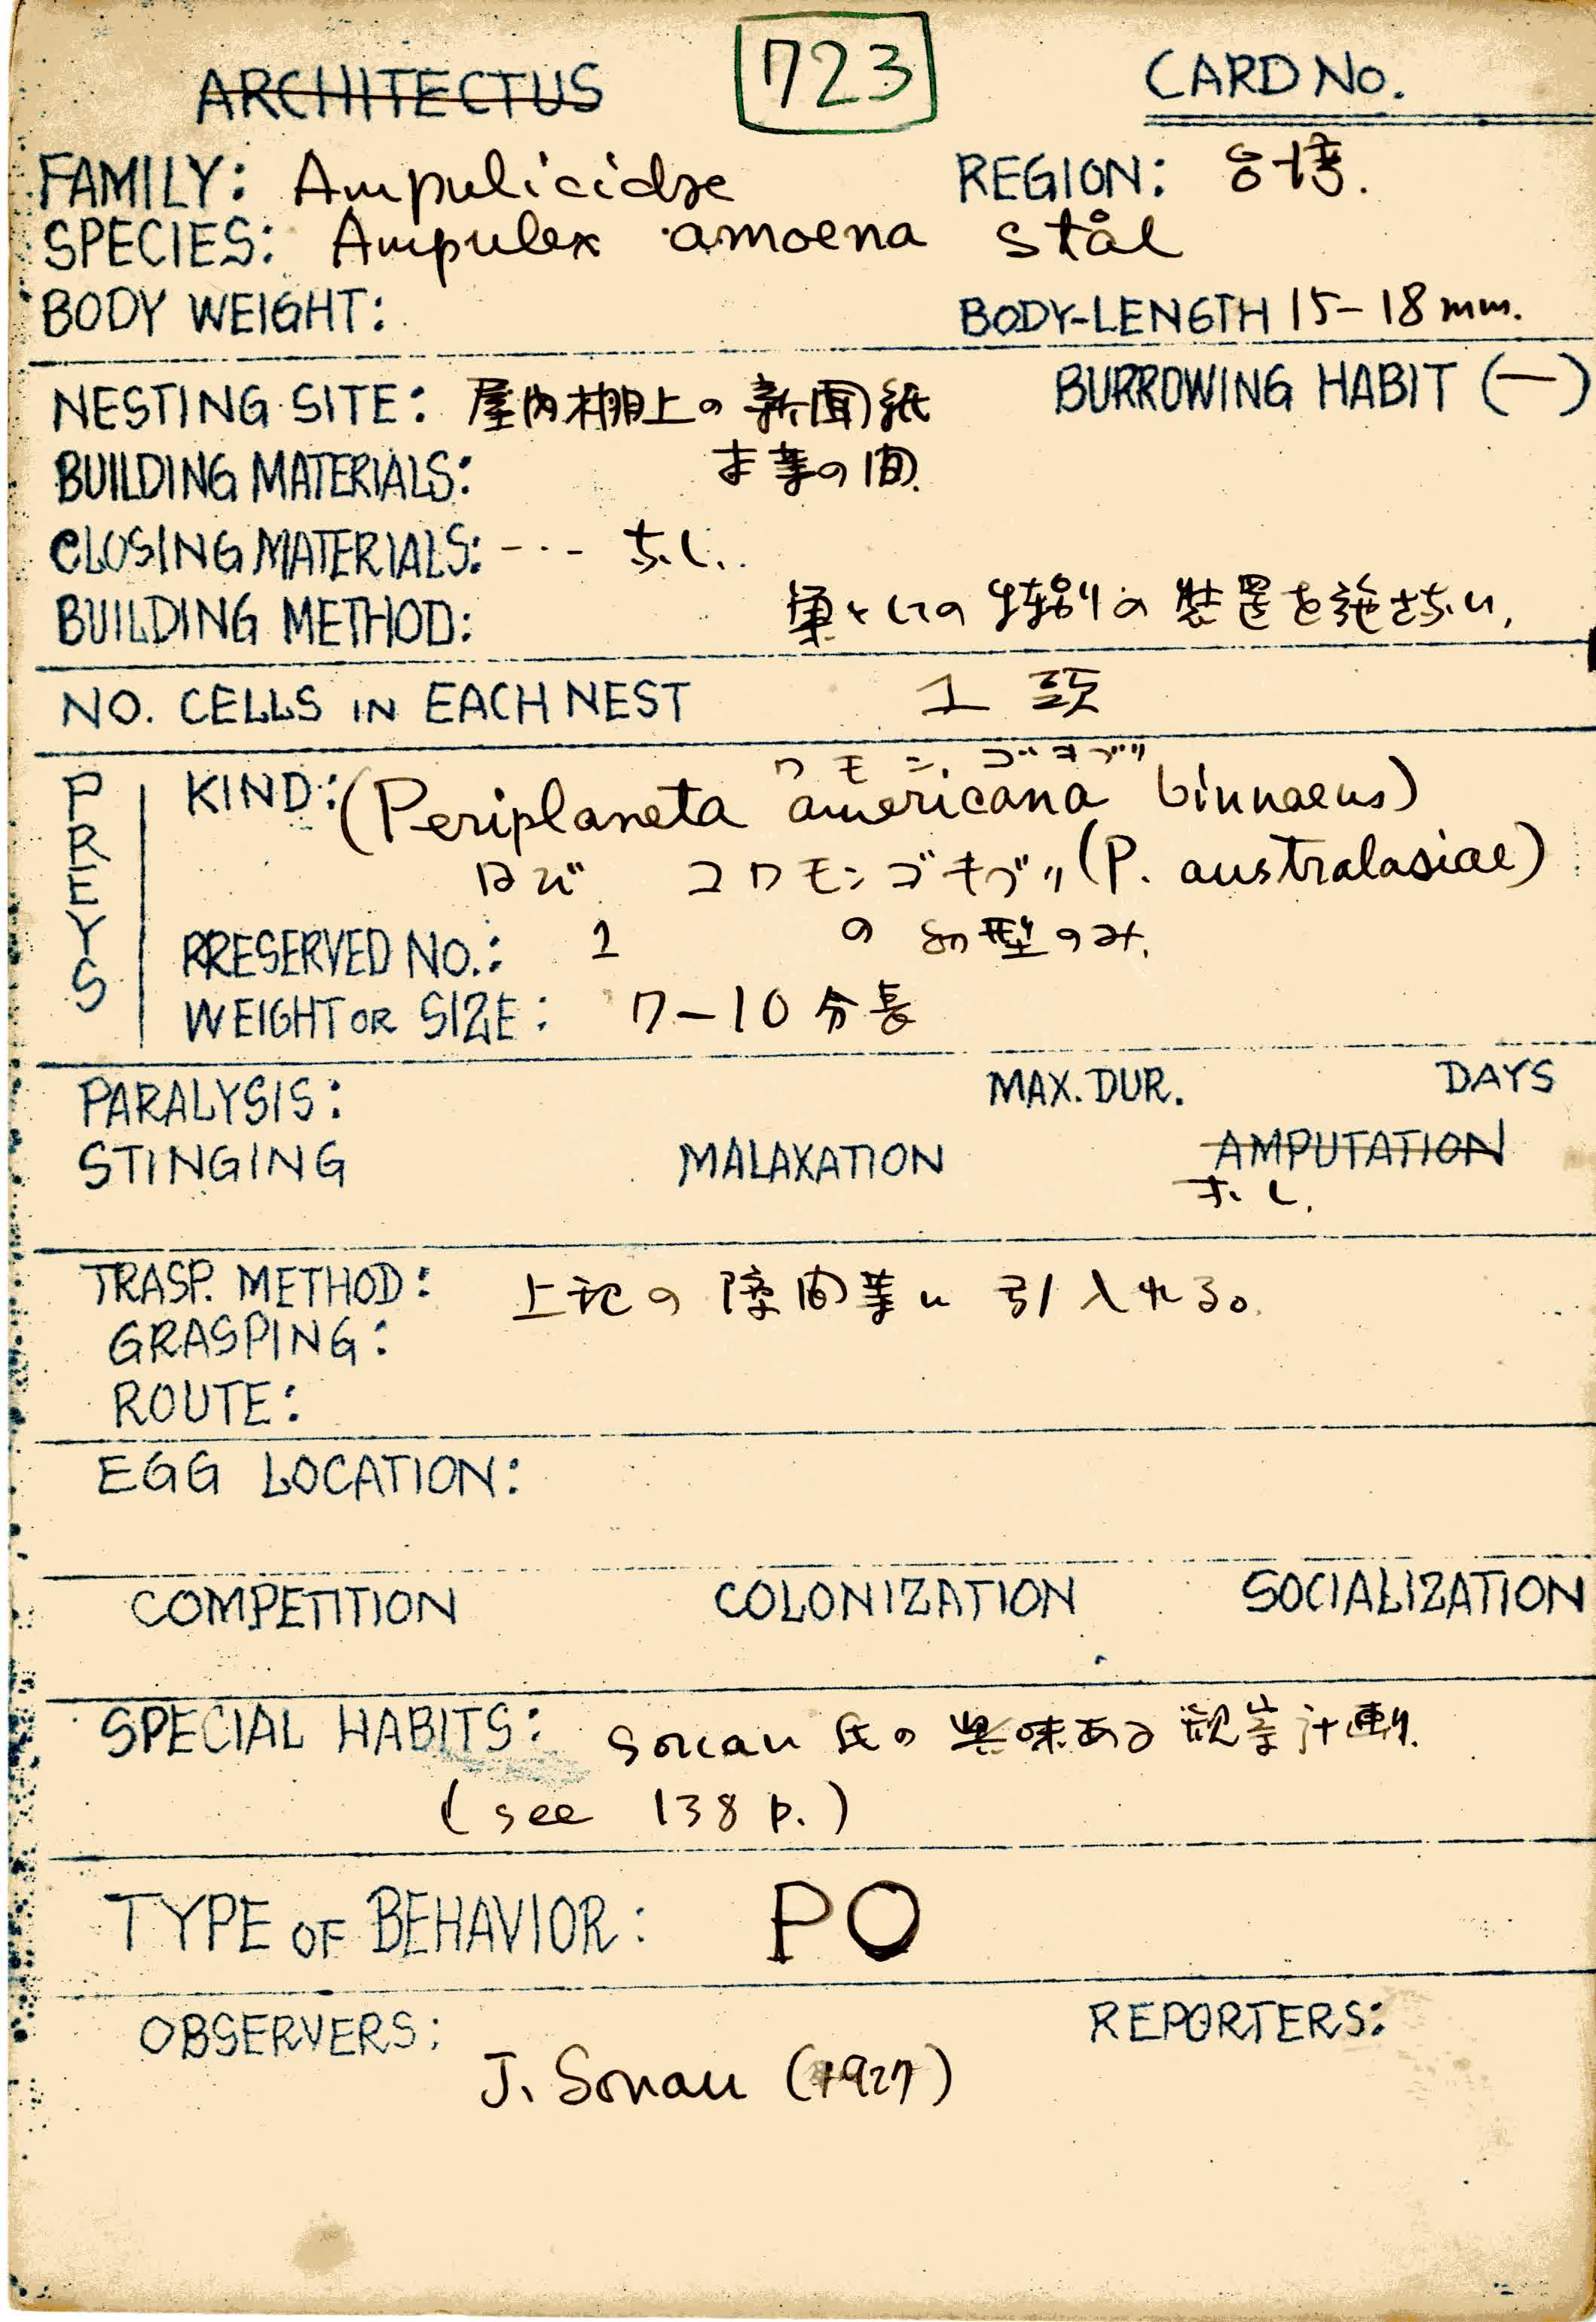 ARCHITECTUS
723
CARD No.
FAMILY: Ampulicidae
REGION: 台湾.
SPECIES: Ampulex amoena Stål
BODY WEIGHT:
BODY-LENGTH 15-18 mm.
NESTING SITE: 屋内棚上の新聞紙
BURROWING HABIT (-)
BUILDING MATERIALS: 本等の間.
CLOSING MATERIALS: --- なし.
BUILDING METHOD: 巣としての特別の装置を施さない.
NO. CELLS IN EACH NEST 1頭
PREYS
ワモンゴキブリ
KIND: (Periplaneta americana Linnaeus)
及び コワモンゴキブリ (P. australasiae)
の幼型のみ.
PRESERVED NO.: 1
WEIGHT OR SIZE: 7-10分長
PARALYSIS: MAX. DUR. DAYS
STINGING MALAXATION AMPUTATION
なし.
TRASP. METHOD: 上記の隙間等に引入れる。
GRASPING:
ROUTE:
EGG LOCATION:
COMPETITION COLONIZATION SOCIALIZATION
SPECIAL HABITS: Sonan氏の興味ある観察計画.
(see 138 p.)
TYPE OF BEHAVIOR: PO
OBSERVERS: REPORTERS:
J. Sonan (1927)